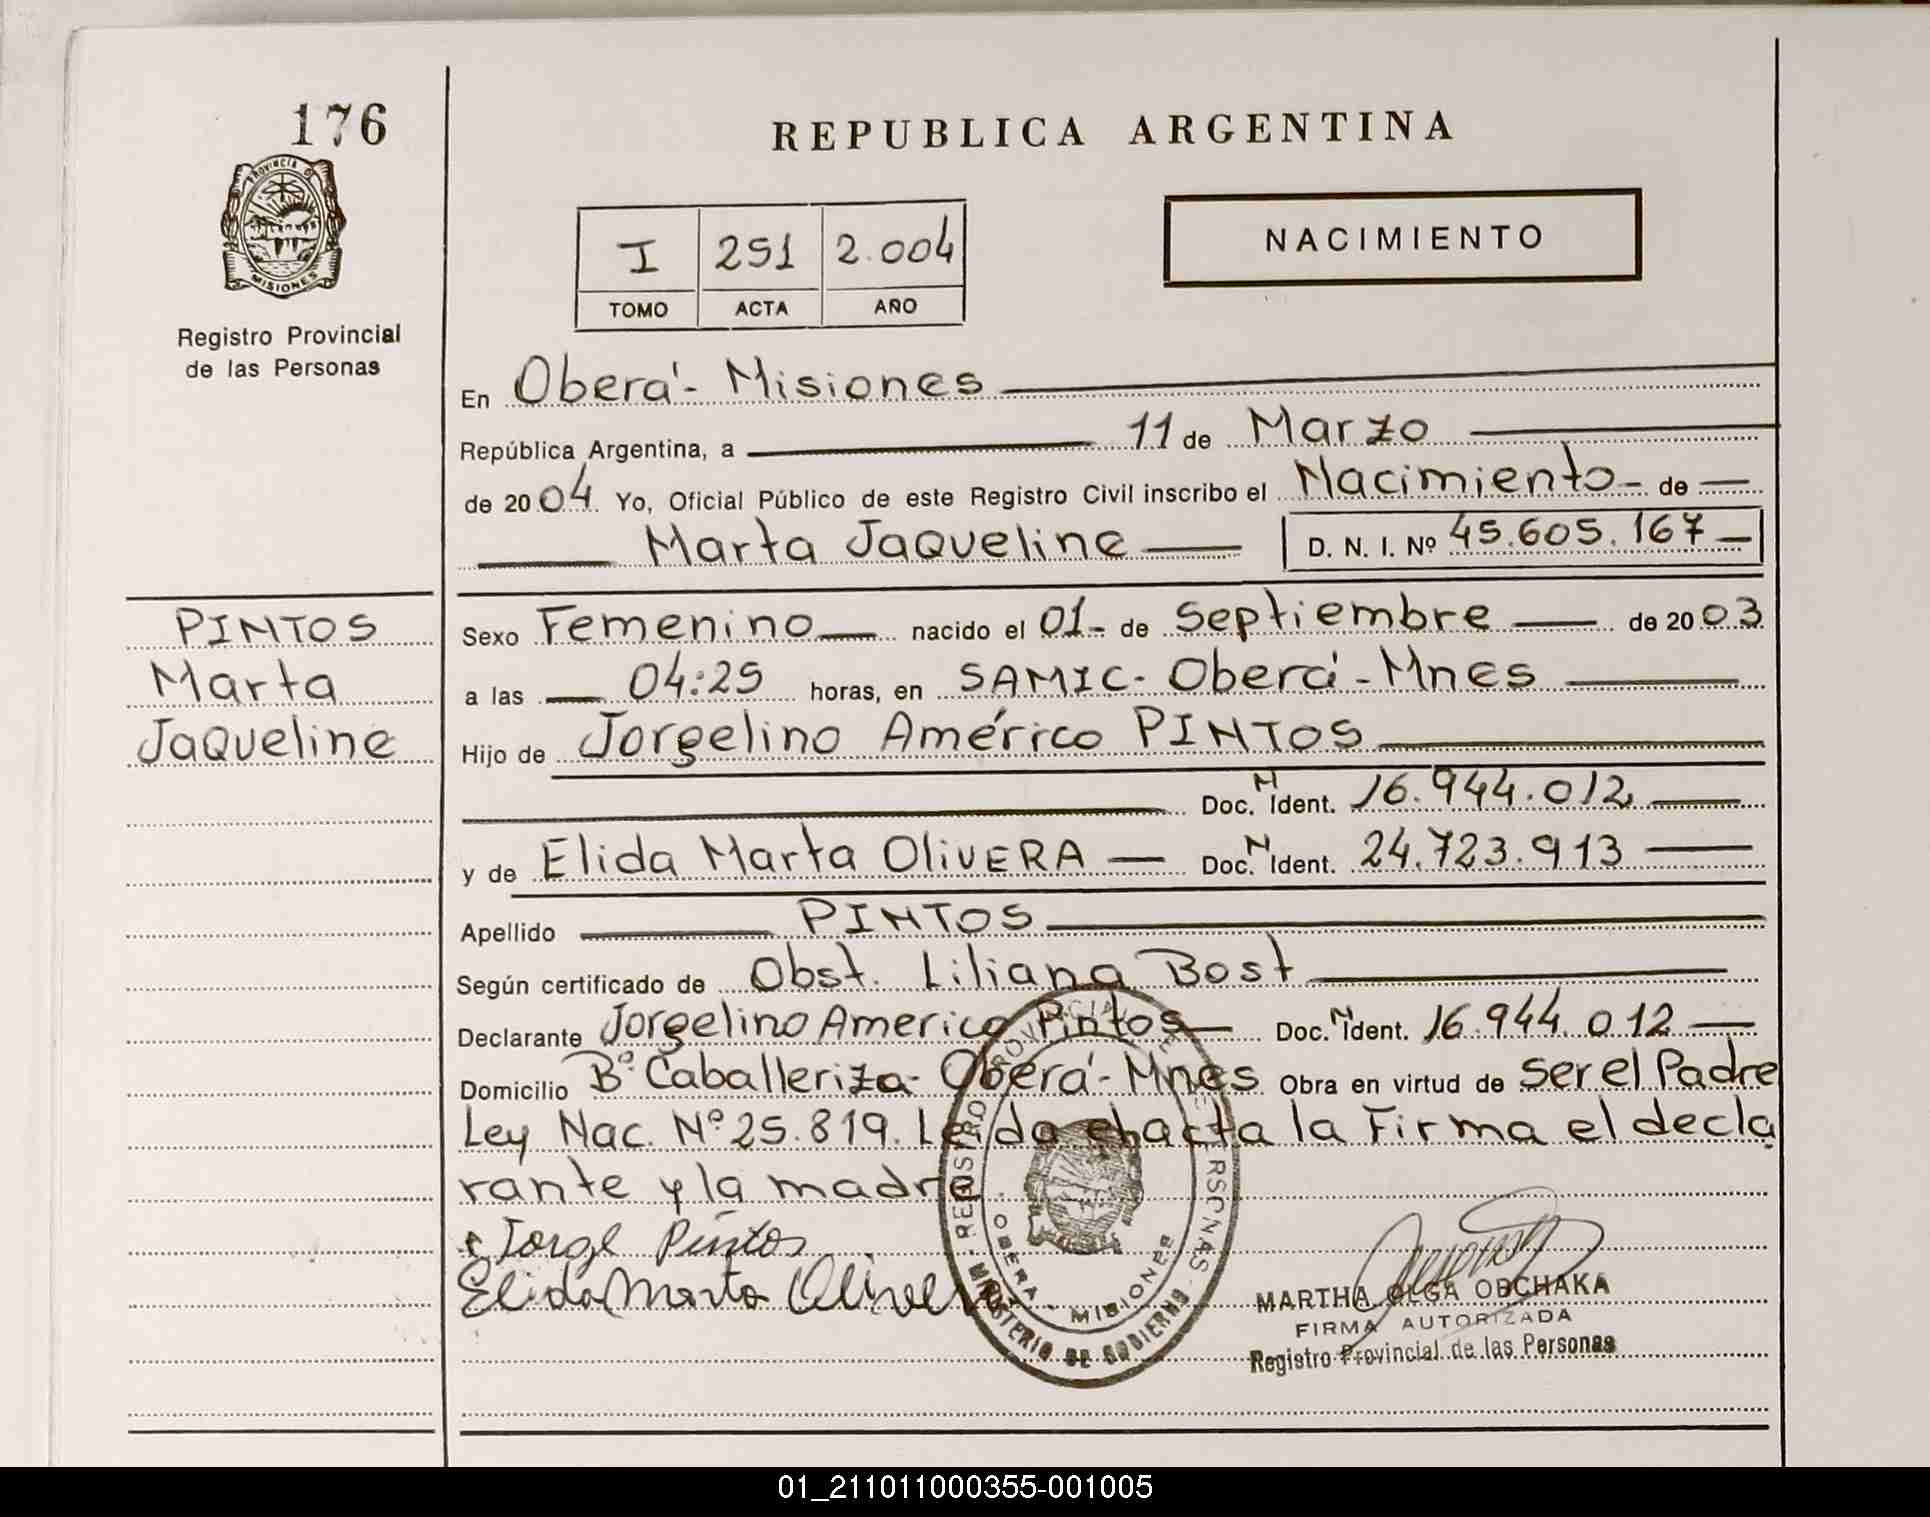 176
REPUBLICA ARGENTINA
PROVINCIA DE
MISIONES
Registro Provincial
de las Personas
I 251 2.004
TOMO ACTA AÑO
NACIMIENTO
En Oberá - Misiones
República Argentina, a 11 de Marzo
de 2004. Yo, Oficial Público de este Registro Civil inscribo el Nacimiento - de
Marta Jaqueline D. N. I. Nº 45.605.167
PINTOS
Marta
Jaqueline
Sexo Femenino nacido el 01- de Septiembre de 2003
a las 04:25 horas, en SAMIC- Oberá - Mnes
Hijo de Jorgelino Américo PINTOS
Doc. N Ident. 16.944.012
y de Elida Marta OliVERA Doc. N Ident. 24.723.913
Apellido PINTOS
Según certificado de Obst. Liliana Bost
Declarante Jorgelino Americo Pintos Doc. N Ident. 16.944.012
Domicilio Bº Caballeriza - Oberá - Mnes Obra en virtud de ser el Padre
Ley Nac. Nº 25.819. Leida el acta la Firma el decla
rante y la madre.
Jorge Pintos
Elida Marta Olivera
REGISTRO PROVINCIAL DE LAS PERSONAS
MINISTERIO DE GOBIERNO
OBERA - MISIONES
MARTHA OLGA OBCHAKA
FIRMA AUTORIZADA
Registro Provincial de las Personas
01_211011000355-001005